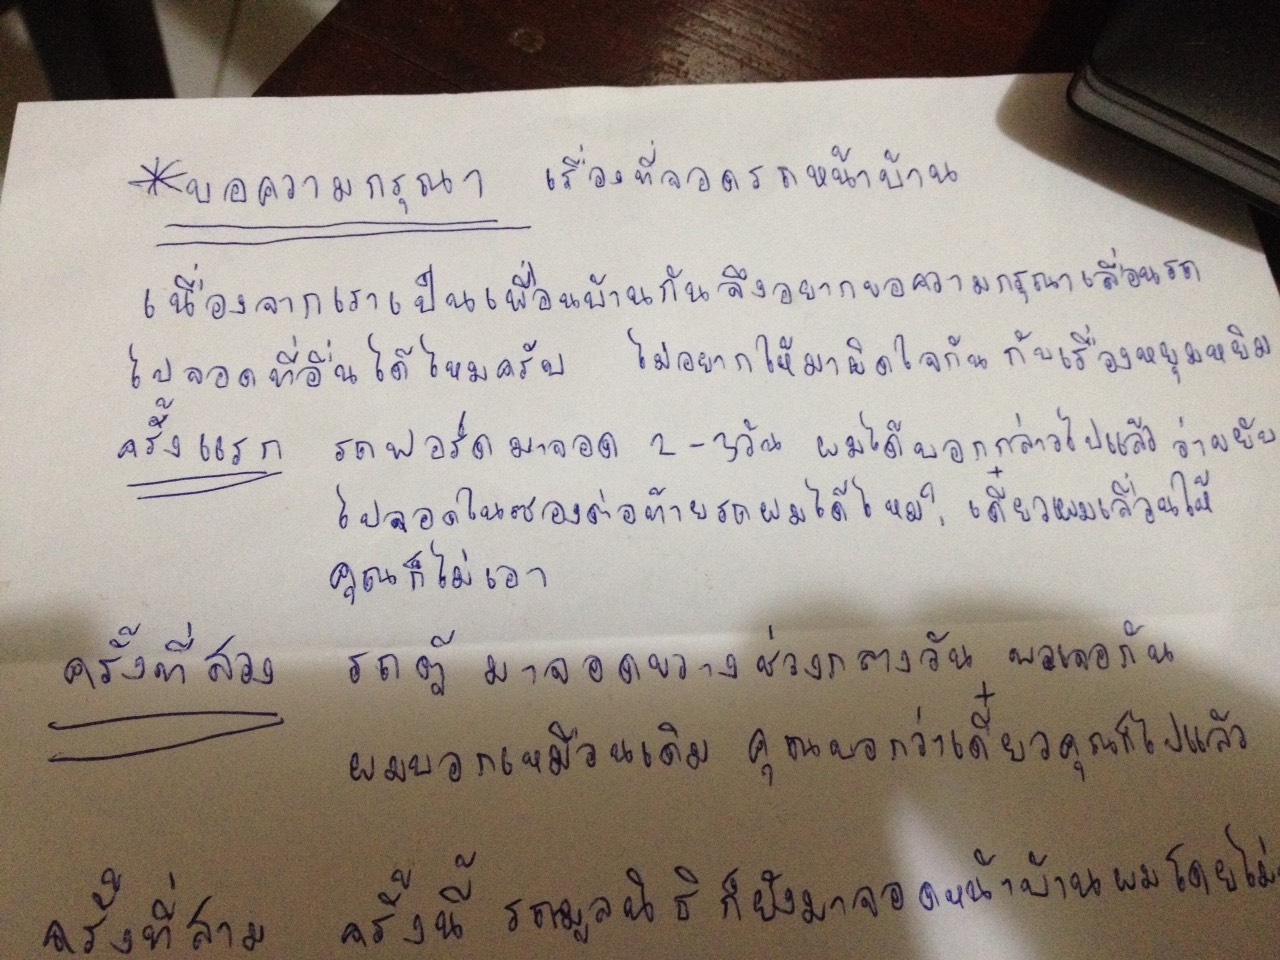 *ขอความกรุณา เรื่องที่จอดรถหน้าบ้าน
เนื่องจากเราเป็นเพื่อนบ้านกันจึงอยากขอความกรุณาเลื่อนรถ
ไปจอดที่อื่นได้ไหมครับ ไม่อยากให้มาผิดใจกัน กับเรื่องหยุมหยิม
ครั้งแรก รถฟอร์ดมาจอด 2-3วัน ผมได้บอกกล่าวไปแล้ว ว่าขยับ
ไปจอดในซองต่อท้ายรถผมได้ไหม?, เดี๋ยวผมเลื่อนให้
คุณก็ไม่เอา
ครั้งที่สอง รถตู้ มาจอดขวางช่วงกลางวัน พอเจอกัน
ผมบอกเหมือนเดิม คุณบอกว่าเดี๋ยวคุณก็ไปแล้ว
ครั้งที่สาม ครั้งนี้ รถมูลนิธิก็ยังมาจอดหน้าบ้านผมโดยไม่